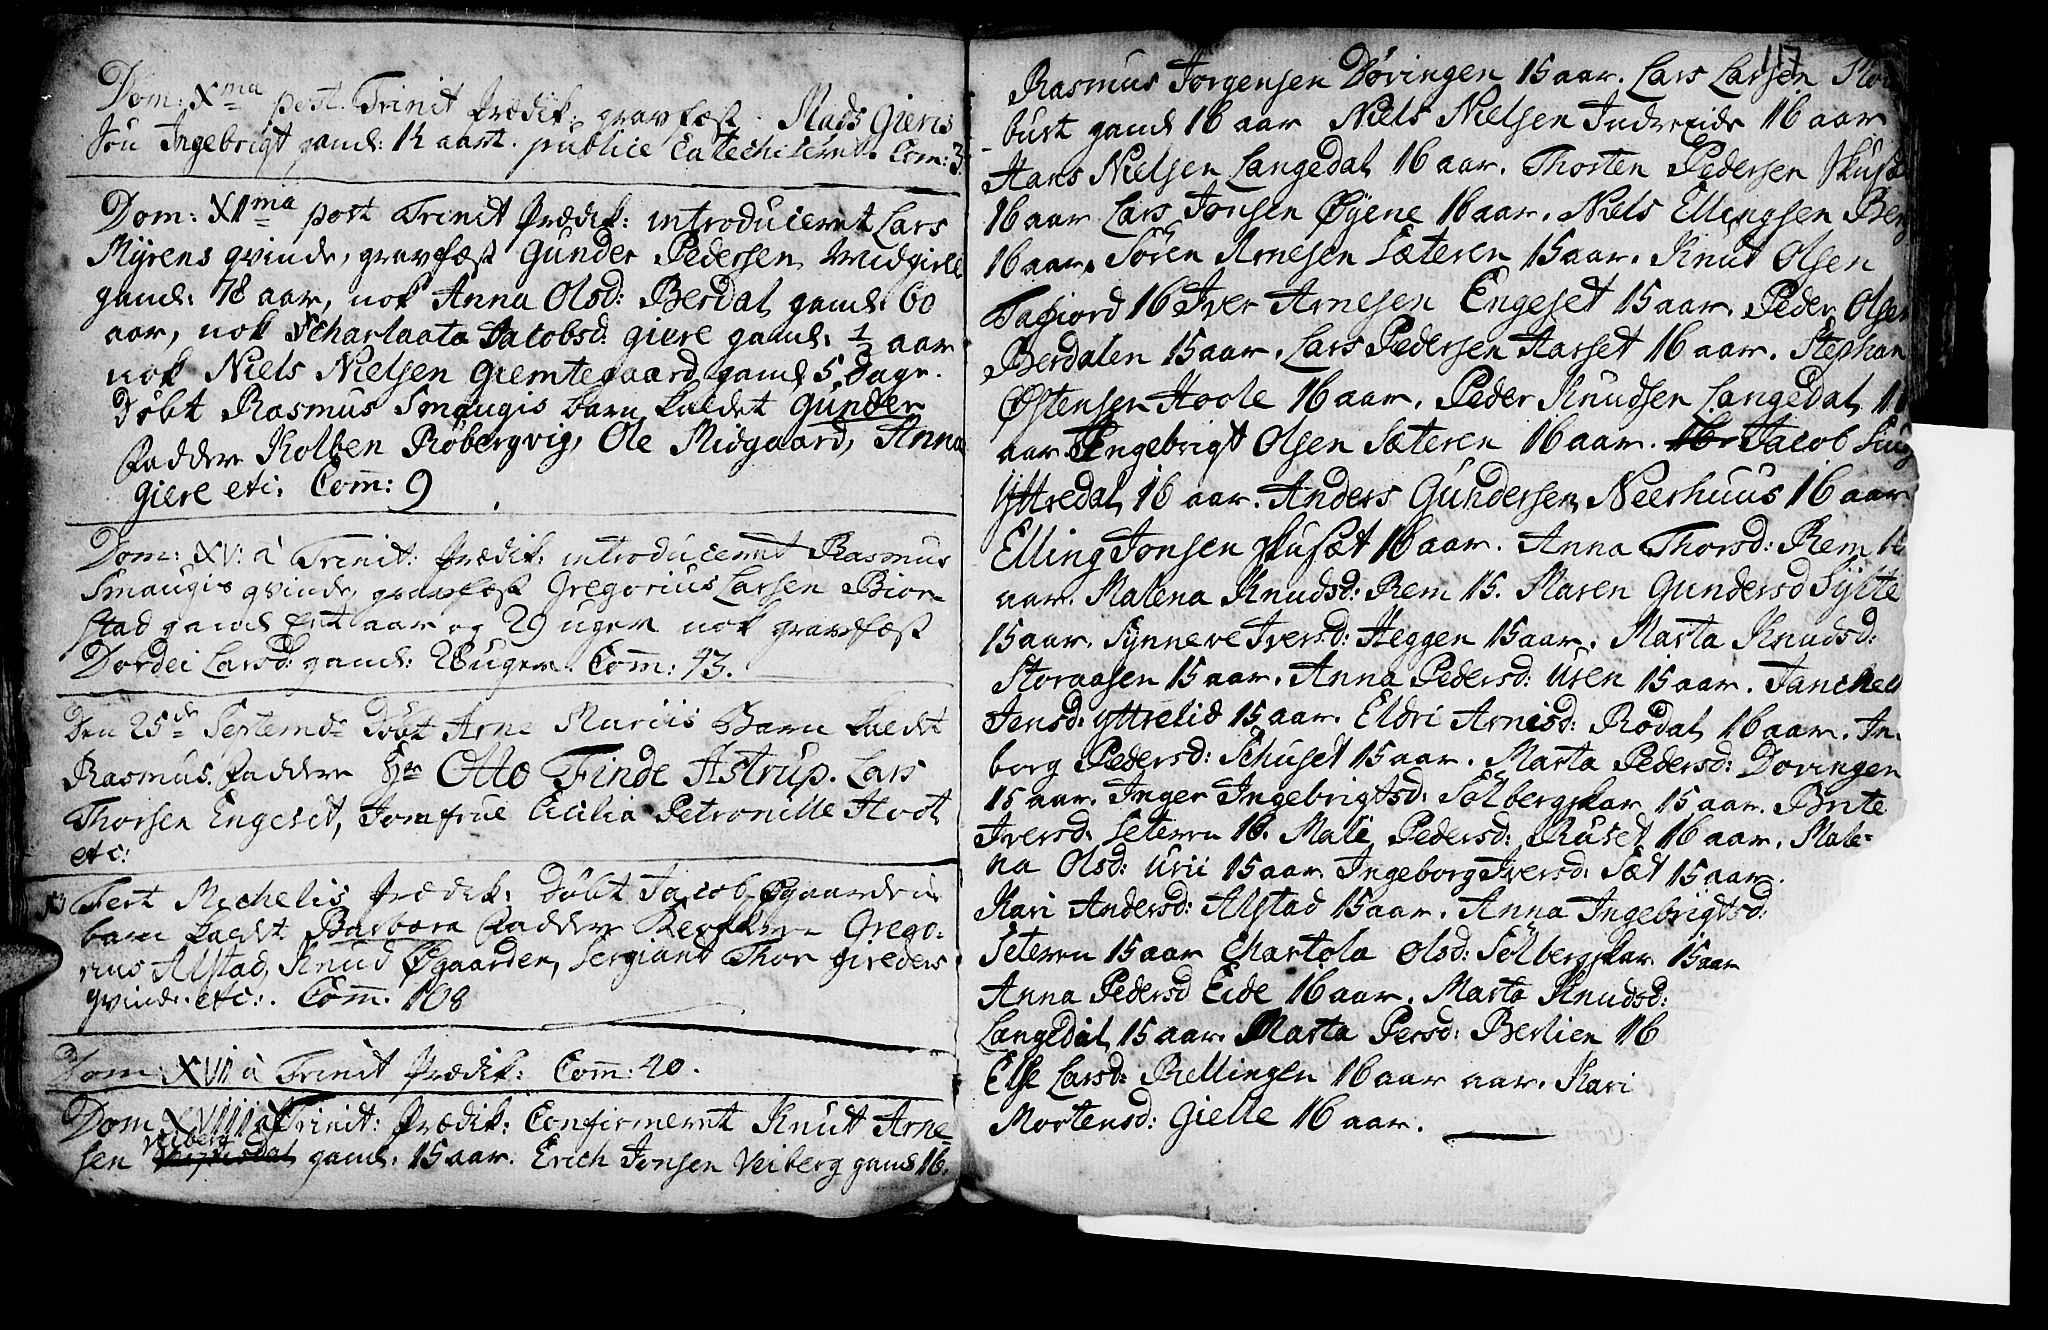 Dom: Xma post. Trinit Prædik: gravfæst Mads Gieris
Søn Ingebrigt gaml: 12 aar. publice Catechiseret. Com: 3
Dom: XIma post Trinit Prædik: introduceret Lars
Myrens qvinde, gravfæst Gunder Pedersen
gaml: 78 aar, nok Anna Olsd: Berdal gaml: 60
aar, nok Scharlaata Jacobsd: giere gaml: ½ aar
nok Niels Nielsen Giemtegaard gaml 5 Dage.
Døbt Rasmus Smaugis barn kaldet Gunder
Faddere Kolben Røbergvig, Ole Midgaard, Anna
giere etc: Com: 9
Dom: XV: à Trinit: Prædik: introduceret Rasmus
Smaugis qvinde, gravfæst Gregorius Larsen Bior-
stad gaml et aar og 29 uger nok gravfæst
Dordei Larsd: gaml: 28 uger. Com: 43.
Den 25de Septembr Døbt Arne Muriis Barn kaldet
Rasmus. Faddere Hr Otto Finde Astrup. Lars
Thorsen Engeset, Jomfrue Cicilia Petronille Hodt
etc:
Fest Michelis Prædik: Døbt Jacob Øgaardens
barn kaldet Barbara Faddere Grego:
rius Alstad, Knud Øgaarden, Sergiant Thor gireders
qvinde. etc:. Com: 108
Dom: XVII à Trinit Prædik: Com: 40.
Dom: XVIII à Trinit: Prædik: Confirmeret Knut Arne-
sen Veiberg gaml: 15 aar. Erich Jonsen Veiberg gaml 16.
117
Rasmus Jorgensen Døvingen 15 aar. Lars Larsen
bust gaml 16 aar Niels Nielsen Indreeide 16 aar
Hans Nielsen Langedal 16 aar. Thosten Pedersen
16 aar Lars Jonsen Øyene 16 aar. Niels Ellingsen
16 aar. Søren Arnesen Sæteren 15 aar. Knut Olsen
Tafiord 16 Iver Arnesen Engeset 15 aar. Peder Olsen
Berdalen 15 aar. Lars Pedersen Aarset 16 aar. Stephan
Østensen Hoole 16 aar. Peder Knudsen Langedal
aar Ingebrigt Olsen Sæteren 16 aar. Jacob
Yttredal 16 aar. Anders Gundersen Neerhuus 16 aar
Elling Jonsen Skusæt 16 aar. Anna Thorsd: Rem
aar. Malena Knudsd: Rem 15. Maren Gundersd Sylte
15 aar. Synneve Iversd: Heggen 15 aar. Marta Knudsd:
Storaasen 15 aar. Anna Pedersd: Uren 15 aar. Janchen
Jensd: Yttrelid 15 aar. Eldri Arnesd: Rødal 16 aar. In-
borg Pedersd: Schuset 15 aar. Marta Pedersd: Dovingen
15 aar. Inger Ingebrigtsd: Sølbergskar 15 aar. Brite
Iversd: Seteren 16. Male Pedersd: Ruset 16 aar. Male-
na Olsd: Urii 15 aar Ingeborg Iversd: Sæt 15 aar.
Kari Andersd: Alstad 15 aar. Anna Ingebrigtsd:
Seteren 15 aar Chartola Olsd: Sølbergskar 15 aar
Anna Pedersd Eide 16 aar. Marta Knudsd:
Langedal 15 aar. Marta Persd: Berlien 16
Else Larsd: Rellingen 16 aar aar. Kari
Mortensd: Gielle 16 aar.